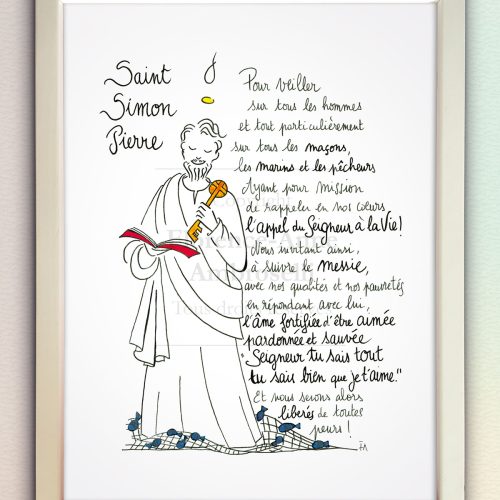 Saint
Simon
Pierre
Pour veiller
sur tous les hommes
et tout particulièrement
sur tous les maçons,
les marins et les pêcheurs
Ayant pour mission
de rappeler en nos cœurs
l'appel du Seigneur à la Vie!
Nous invitant ainsi,
à suivre le messie,
avec nos qualités et nos pauvretés
en répondant avec lui,
l'âme fortifiée d'être aimée
pardonnée et sauvée
"Seigneur tu sais tout
tu sais bien que je t'aime."
Et nous serons alors
libérés de toutes
peurs!